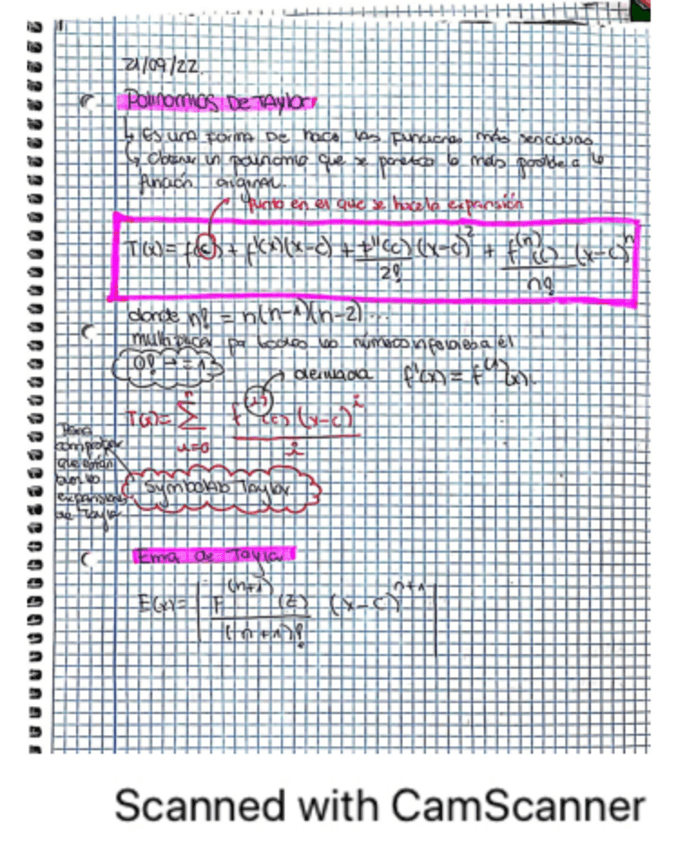 21/09/22.
Polinomios De Taylor
↳ Es una forma De hace las funciones más sencillas
↳ Obtener un polinomio que se parezca lo más posible a la
función original.
Punto en el que se hace la expansión
T(x) = f(c) + f'(x)(x-c) + f''(c)/2! (x-c)^2 + f^(n)(c)/n! (x-c)^n
donde n! = n(n-1)(n-2)...
multiplicar por todos los números el
0! → = 1
→ derivada f'(x) = f^(1)(x).
T(x) = ∑_{i=0}^{n} f^(i)(c) (x-c)^i / i
Para
comprobar
que están
bien las
expansiones
de Taylor
Symbolab Taylor
de Taylor
E(x) = | F^(n+1)(z) / (n+1)! (x-c)^{n+1} |
Scanned with CamScanner